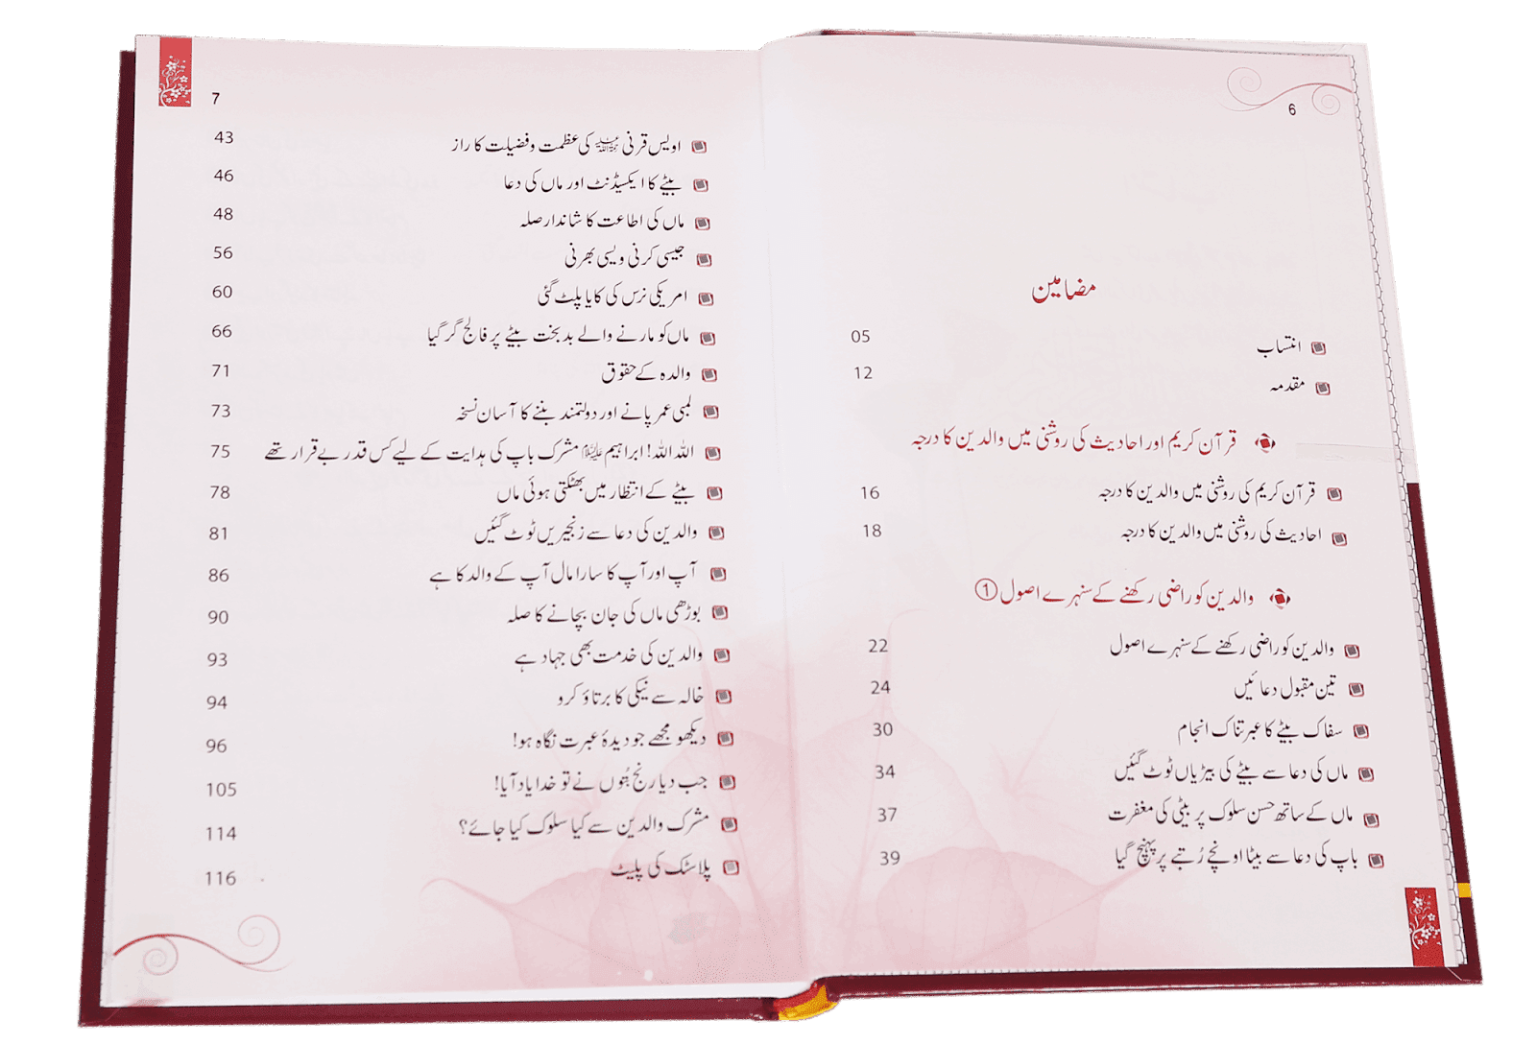 6
مضامین
انتساب 05
مقدمہ 12
قرآن کریم اور احادیث کی روشنی میں والدین کا درجہ
قرآن کریم کی روشنی میں والدین کا درجہ 16
احادیث کی روشنی میں والدین کا درجہ 18
والدین کو راضی رکھنے کے سنہرے اصول ①
والدین کو راضی رکھنے کے سنہرے اصول 22
تین مقبول دعائیں 24
سفاک بیٹے کا عبرتناک انجام 30
ماں کی دعا سے بیٹے کی بیڑیاں ٹوٹ گئیں 34
ماں کے ساتھ حسن سلوک پر بیٹی کی مغفرت 37
باپ کی دعا سے بیٹا اونچے رُتبے پر پہنچ گیا 39
7
اویس قرنی کی عظمت و فضیلت کا راز 43
بیٹے کا ایکسیڈنٹ اور ماں کی دعا 46
ماں کی اطاعت کا شاندار صلہ 48
جیسی کرنی ویسی بھرنی 56
امریکی نرس کی کایا پلٹ گئی 60
ماں کو مارنے والے بدبخت بیٹے پر فالج گر گیا 66
والدہ کے حقوق 71
لمبی عمر پانے اور دولتمند بننے کا آسان نسخہ 73
اللہ اللہ! ابراہیم علیہ السلام مشرک باپ کی ہدایت کے لیے کس قدر بے قرار تھے 75
بیٹے کے انتظار میں بھٹکتی ہوئی ماں 78
والدین کی دعا سے زنجیریں ٹوٹ گئیں 81
آپ اور آپ کا سارا مال آپ کے والد کا ہے 86
بوڑھی ماں کی جان بچانے کا صلہ 90
والدین کی خدمت بھی جہاد ہے 93
خالہ سے نیکی کا برتاؤ کرو 94
دیکھو مجھے جو دیدۂ عبرت نگاہ ہو! 96
جب دیا رنج بُتوں نے تو خدا یاد آیا! 105
مشرک والدین سے کیا سلوک کیا جائے؟ 114
پلاسٹک کی پلیٹ 116